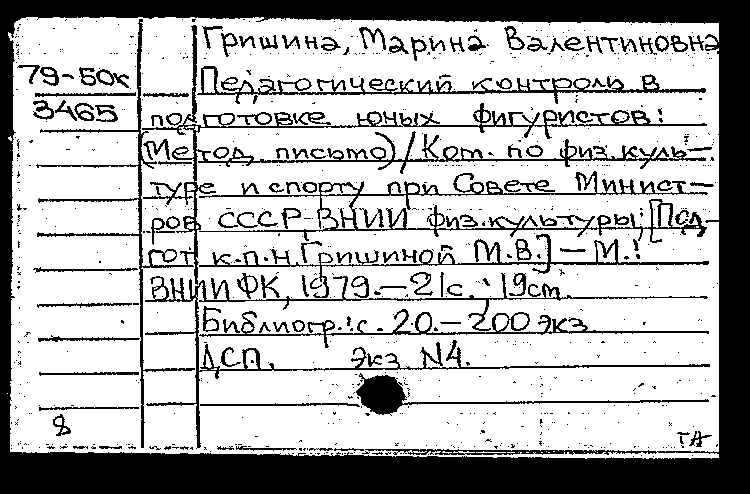 Гришина, Марина Валентиновна
79-50к Педагогический контроль в
3465 подготовке юных фигуристов:
(Метод. письмо) / Ком. по физ. куль-
туре и спорту при Совете Минист-
ров СССР, ВНИИ физ. культуры; [Под-
гот. к.п.н. Гришиной М.В.] — М.:
ВНИИФК, 1979. — 21с.; 19см.
Библиогр.: с. 20. — 200 экз.
ДСП. Экз. N4.
8